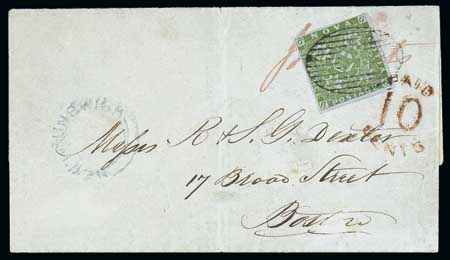 NOVA
PAID
10
CTS
NEW BRUNSWICK
Messrs R & S. G. Dexter
17 Broad Street
Boston